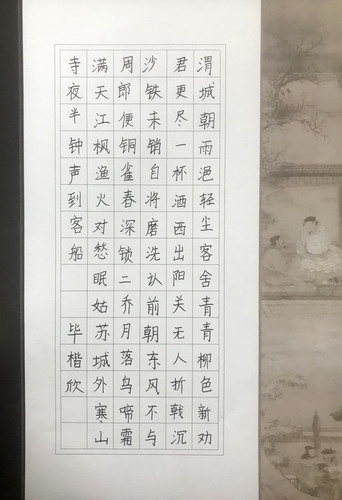 渭城朝雨浥轻尘客舍青青柳色新劝
君更尽一杯酒西出阳关无人折戟沉
沙铁未销自将磨洗认前朝东风不与
周郎便铜雀春深锁二乔月落乌啼霜
满天江枫渔火对愁眠姑苏城外寒山
寺夜半钟声到客船
毕楷欣